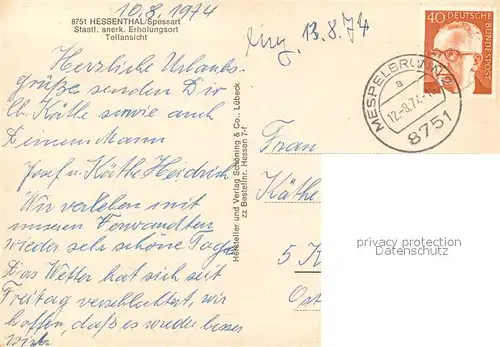 10.8.1974
8751 HESSENTHAL/Spessart
Staatl. anerk. Erholungsort
Teilansicht
Herzliche Urlaubs-
grüße senden Dir
lb. Käthe sowie auch
Deinem Mann
Josef u. Käthe Heidrich
Wir verleben mit
unseren Verwandten
wieder sehr schöne Tage
Das Wetter hat sich seit
Freitag verschlechtert, wir
hoffen, daß es wieder besser
wird
Hersteller und Verlag Schöning & Co., Lübeck
zz Bestellnr. Hessen 7-f
13.8.74
40 DEUTSCHE
BUNDESPOST
MESPELBRUNN 2
a
12.-8.74
8751
Frau
Käthe
5 K
Ost
privacy protection
Datenschutz